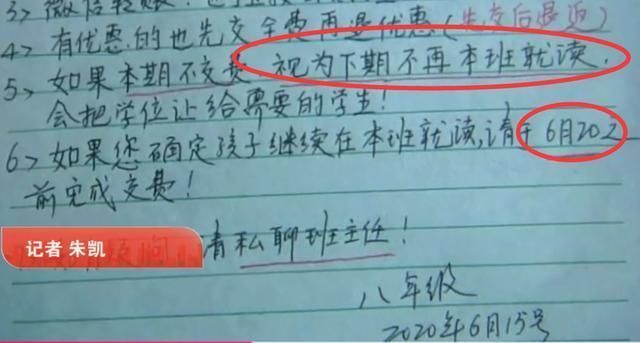 4> 有优惠的也先交全费再退优惠(先交后退返)
5、如果本期不交费,视为下期不再本班就读,
会把学位让给需要的学生!
6> 如果您确定孩子继续在本班就读,请于6月20之
前完成交费!
请私聊班主任!
八年级
2020年6月15号
记者 朱凯